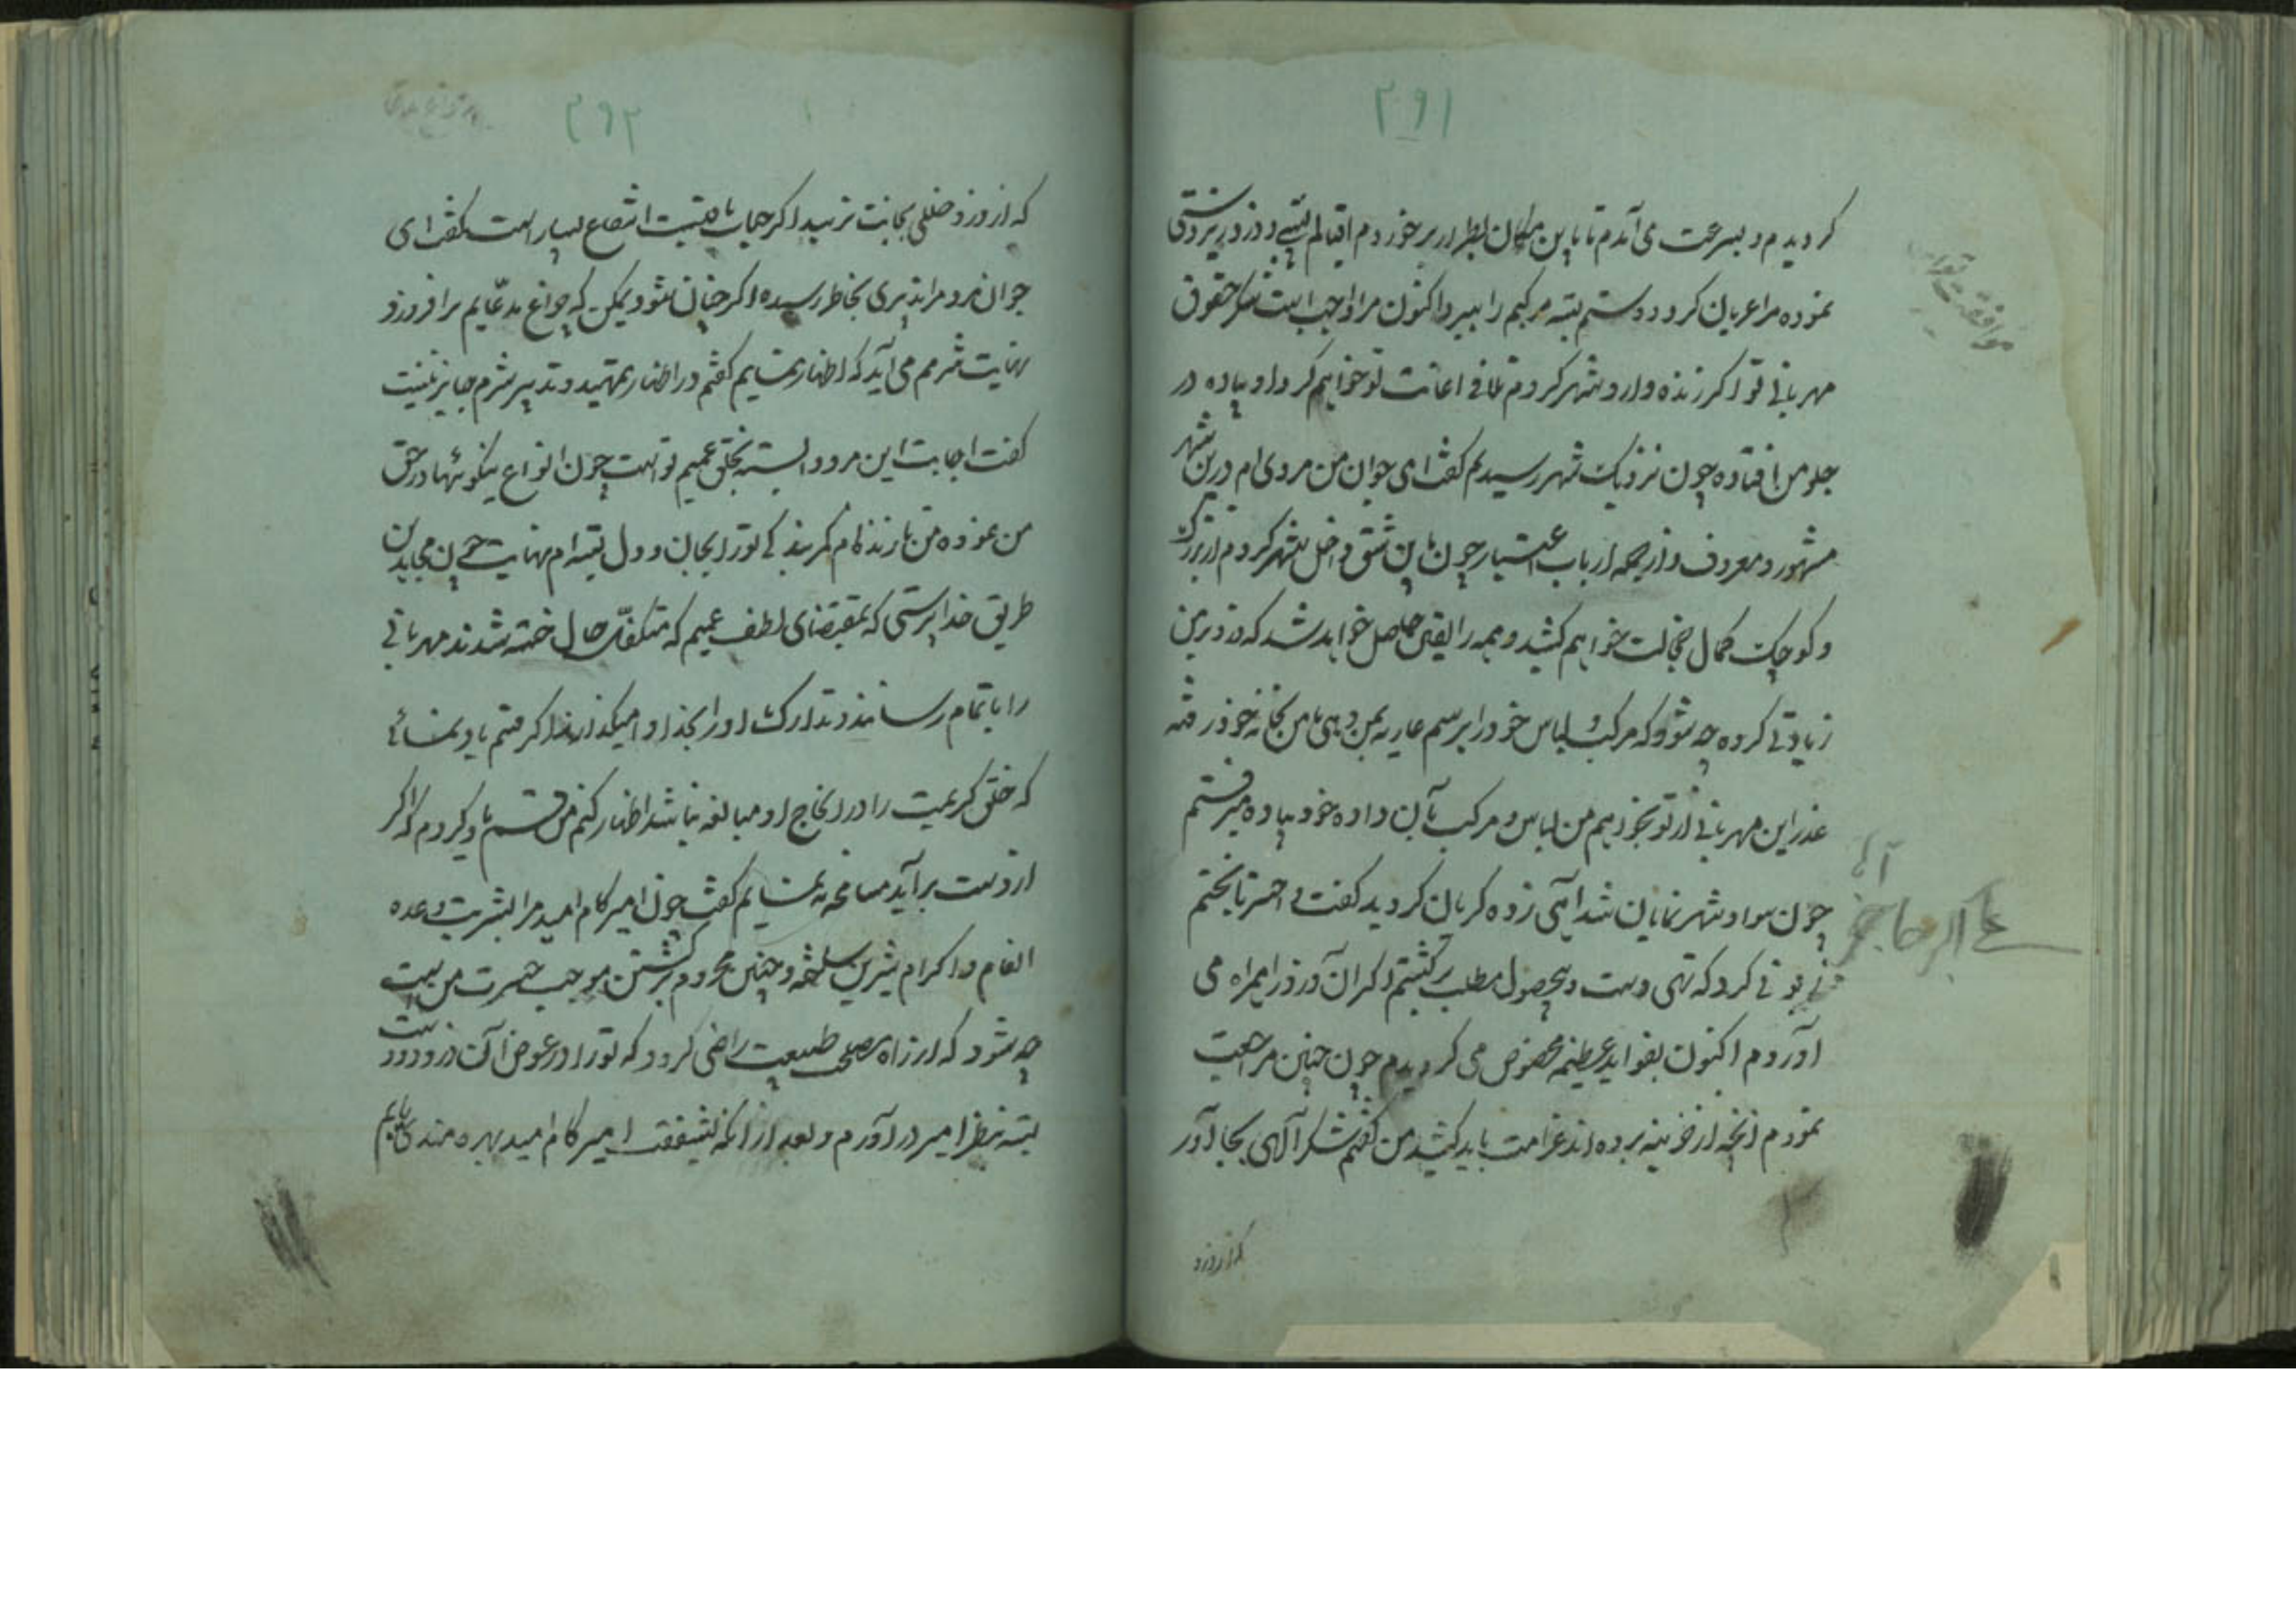 ۲۹۱
کردیدم و بسرعت می آمدم تا باین مکان بطرار برخوردم اقبالم
نموده مرا عریان کرد و دستم بسته مرکبم را ببرد اکنون مرا واجبست شکر حقوق
مهربانی تو اکر زنده وارد شهر کردم تلافی اعانت تو خواهم کرد او پیاده در
جلو من افتاده چون نزدیک شهر رسیدیم کفت ای جوان من مردی ام درین شهر
مشهور و معروف و از جمله ارباب اعتبار چون باین شق داخل شهر کردم از بزرک
و کوچک کمال خجالت خواهم کشید و همه را یقین حاصل خواهد شد که دزد بمن
زیادتی کرده چه شود که مرکب و لباس خود را برسم عاریه بمن دهی تا من بخانه خود رفته
عذر این مهربانی از تو بخواهم من لباس و مرکب بآن داده خود پیاده میرفتم
چون سواد شهر نمایان شد آهی زده کریان کردید کفت وا حسرتا بختم
زبونی کرد که تهی دست و بیحصول مطلب برکشتم اکر آن دزد را همراه می
آوردم اکنون بفواید عظیمه مخصوص می کردیدم چون چنین مراجعت
نمودم آنچه از خزینه برده اند غرامت باید کشید من کفتم شکر آلهی بجا آور
که از دزد
موافقت
علی اکبر حاجی
۲۹۲
که از دزد خللی بجانت نرسید اکر حیات باقیست انتفاع بسیار است کفت ای
جوانمرد مرا تدبیری بخاطر رسیده اکر چنان شود یمکن که چراغ مدعایم برافروزد
نهایت شرمم می آید که اظهار نمایم کفتم در اظهار تمهید و تدبیر شرم جایز نیست
کفت اجابت این مرد وابسته بخلق عمیم تو است چون انواع نیکوئیها در حق
من نموده من تا زنده ام کمر بندکی تو را بجان و دل بسته ام نهایت چون مجاهدان
طریق خدا پرستی که بمقتضای لطف عمیم که متکفل حال خسته شدند مهربانی
را باتمام رسانند و تدارک او را بخدا وامیکذارند اکر قسم یاد نمائی
که خلق کریمیت را در انجاح او مبالغه باشد اظهار کنم من قسم یاد کردم که اکر
از دست برآید مسامحه ننمایم کفت چون امیر کام امید مرا بشربت وعده
انعام و اکرام شیرین ساخته و چنین محروم برکشتن موجب حسرت من است
چه شود که از راه مصلحت طبیعت راضی کردد که تو را در عوض آن دزد دست
بسته بنظر امیر در آورم و بعد از آنکه بشفقت امیر کام امید بهره مندی یابم